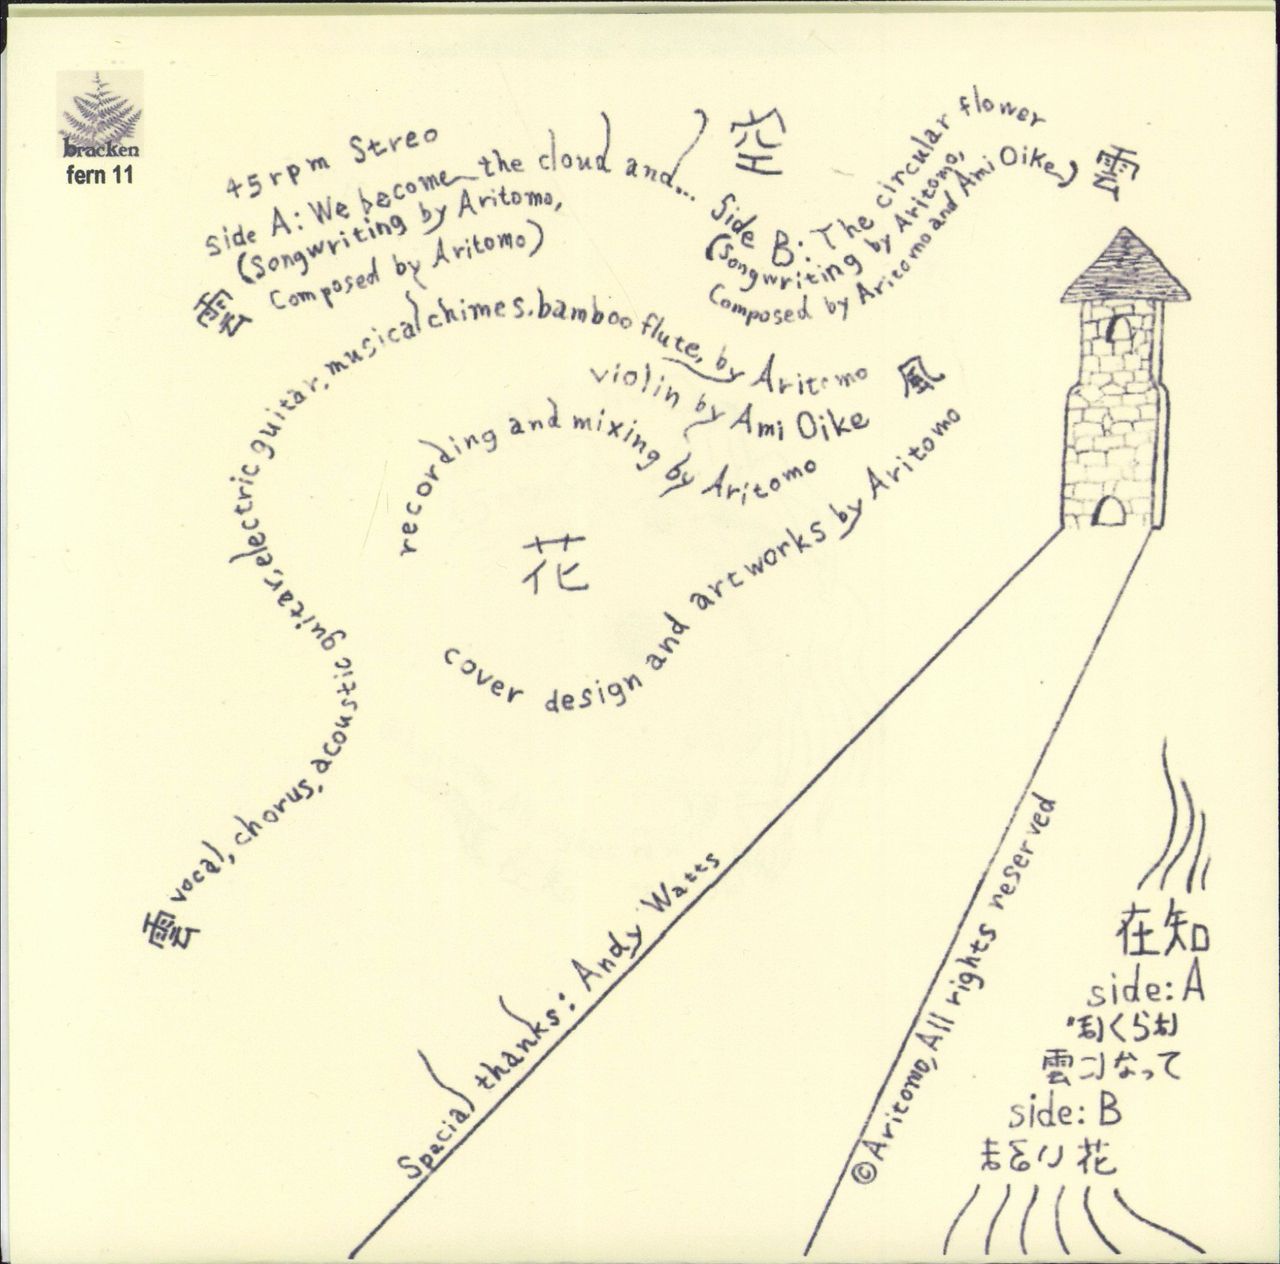 bracken
fern 11
45rpm Streo
side A: We become the cloud and...
(Songwriting by Aritomo,
Composed by Aritomo)
空
Side B: The circular flower
(Songwriting by Aritomo,
Composed by Aritomo and Ami Oike)
雲
雲
雲
vocal, chorus, acoustic guitar, electric guitar, musical chimes, bamboo flute, by Aritomo
violin by Ami Oike
風
recording and mixing by Aritomo
花
cover design and artworks by Aritomo
Spacial thanks: Andy Watts
©Aritomo, All rights reserved
在知
side: A
ぼくらは
雲になって
side: B
まるい花